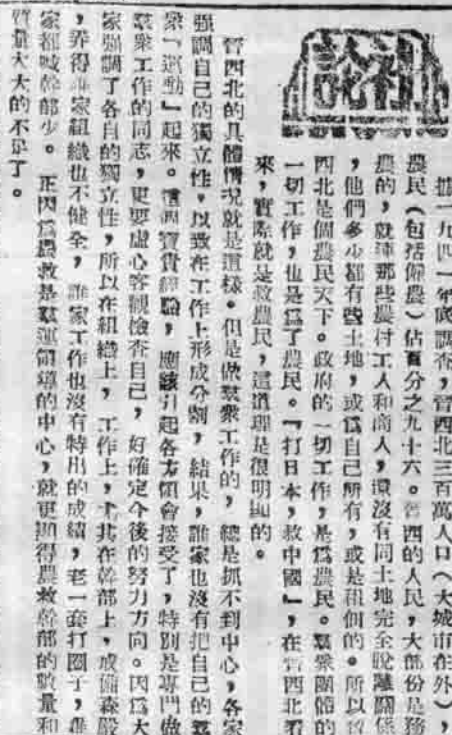 社論
據一九四一年底調查，晉西北三百萬人口（大城市在外），
農民（包括僱農）佔百分之九十六。晉西的人民，大部份是務
農的，就連那些農村工人和商人，還沒有同土地完全脫離關係
，他們多少都有些土地，或爲自己所有，或是租佃的。所以晉
西北是個農民天下。政府的一切工作，是爲農民。羣衆團體的
一切工作，也是爲了農民。『打日本，救中國』，在晉西北看
來，實際就是救農民，這道理是很明顯的。
晉西北的具體情況就是這樣。但是做羣衆工作的，總是抓不到中心，各家
强調自己的獨立性，以致在工作上形成分割，結果，誰家也沒有把自己的羣
衆『運動』起來。這個寶貴經驗，應該引起各方領會接受了，特別是專門做
羣衆工作的同志，更要虛心客觀檢查自己，好確定今後的努力方向。因爲大
家强調了各自的獨立性，所以在組織上，工作上，尤其在幹部上，戒備森嚴
，弄得誰家組織也不健全，誰家工作也沒有特出的成績，老一套打圈子，誰
家都喊幹部少。正因爲農救是羣運領導的中心，就更顯得農救幹部的數量和
質量大大的不足了。